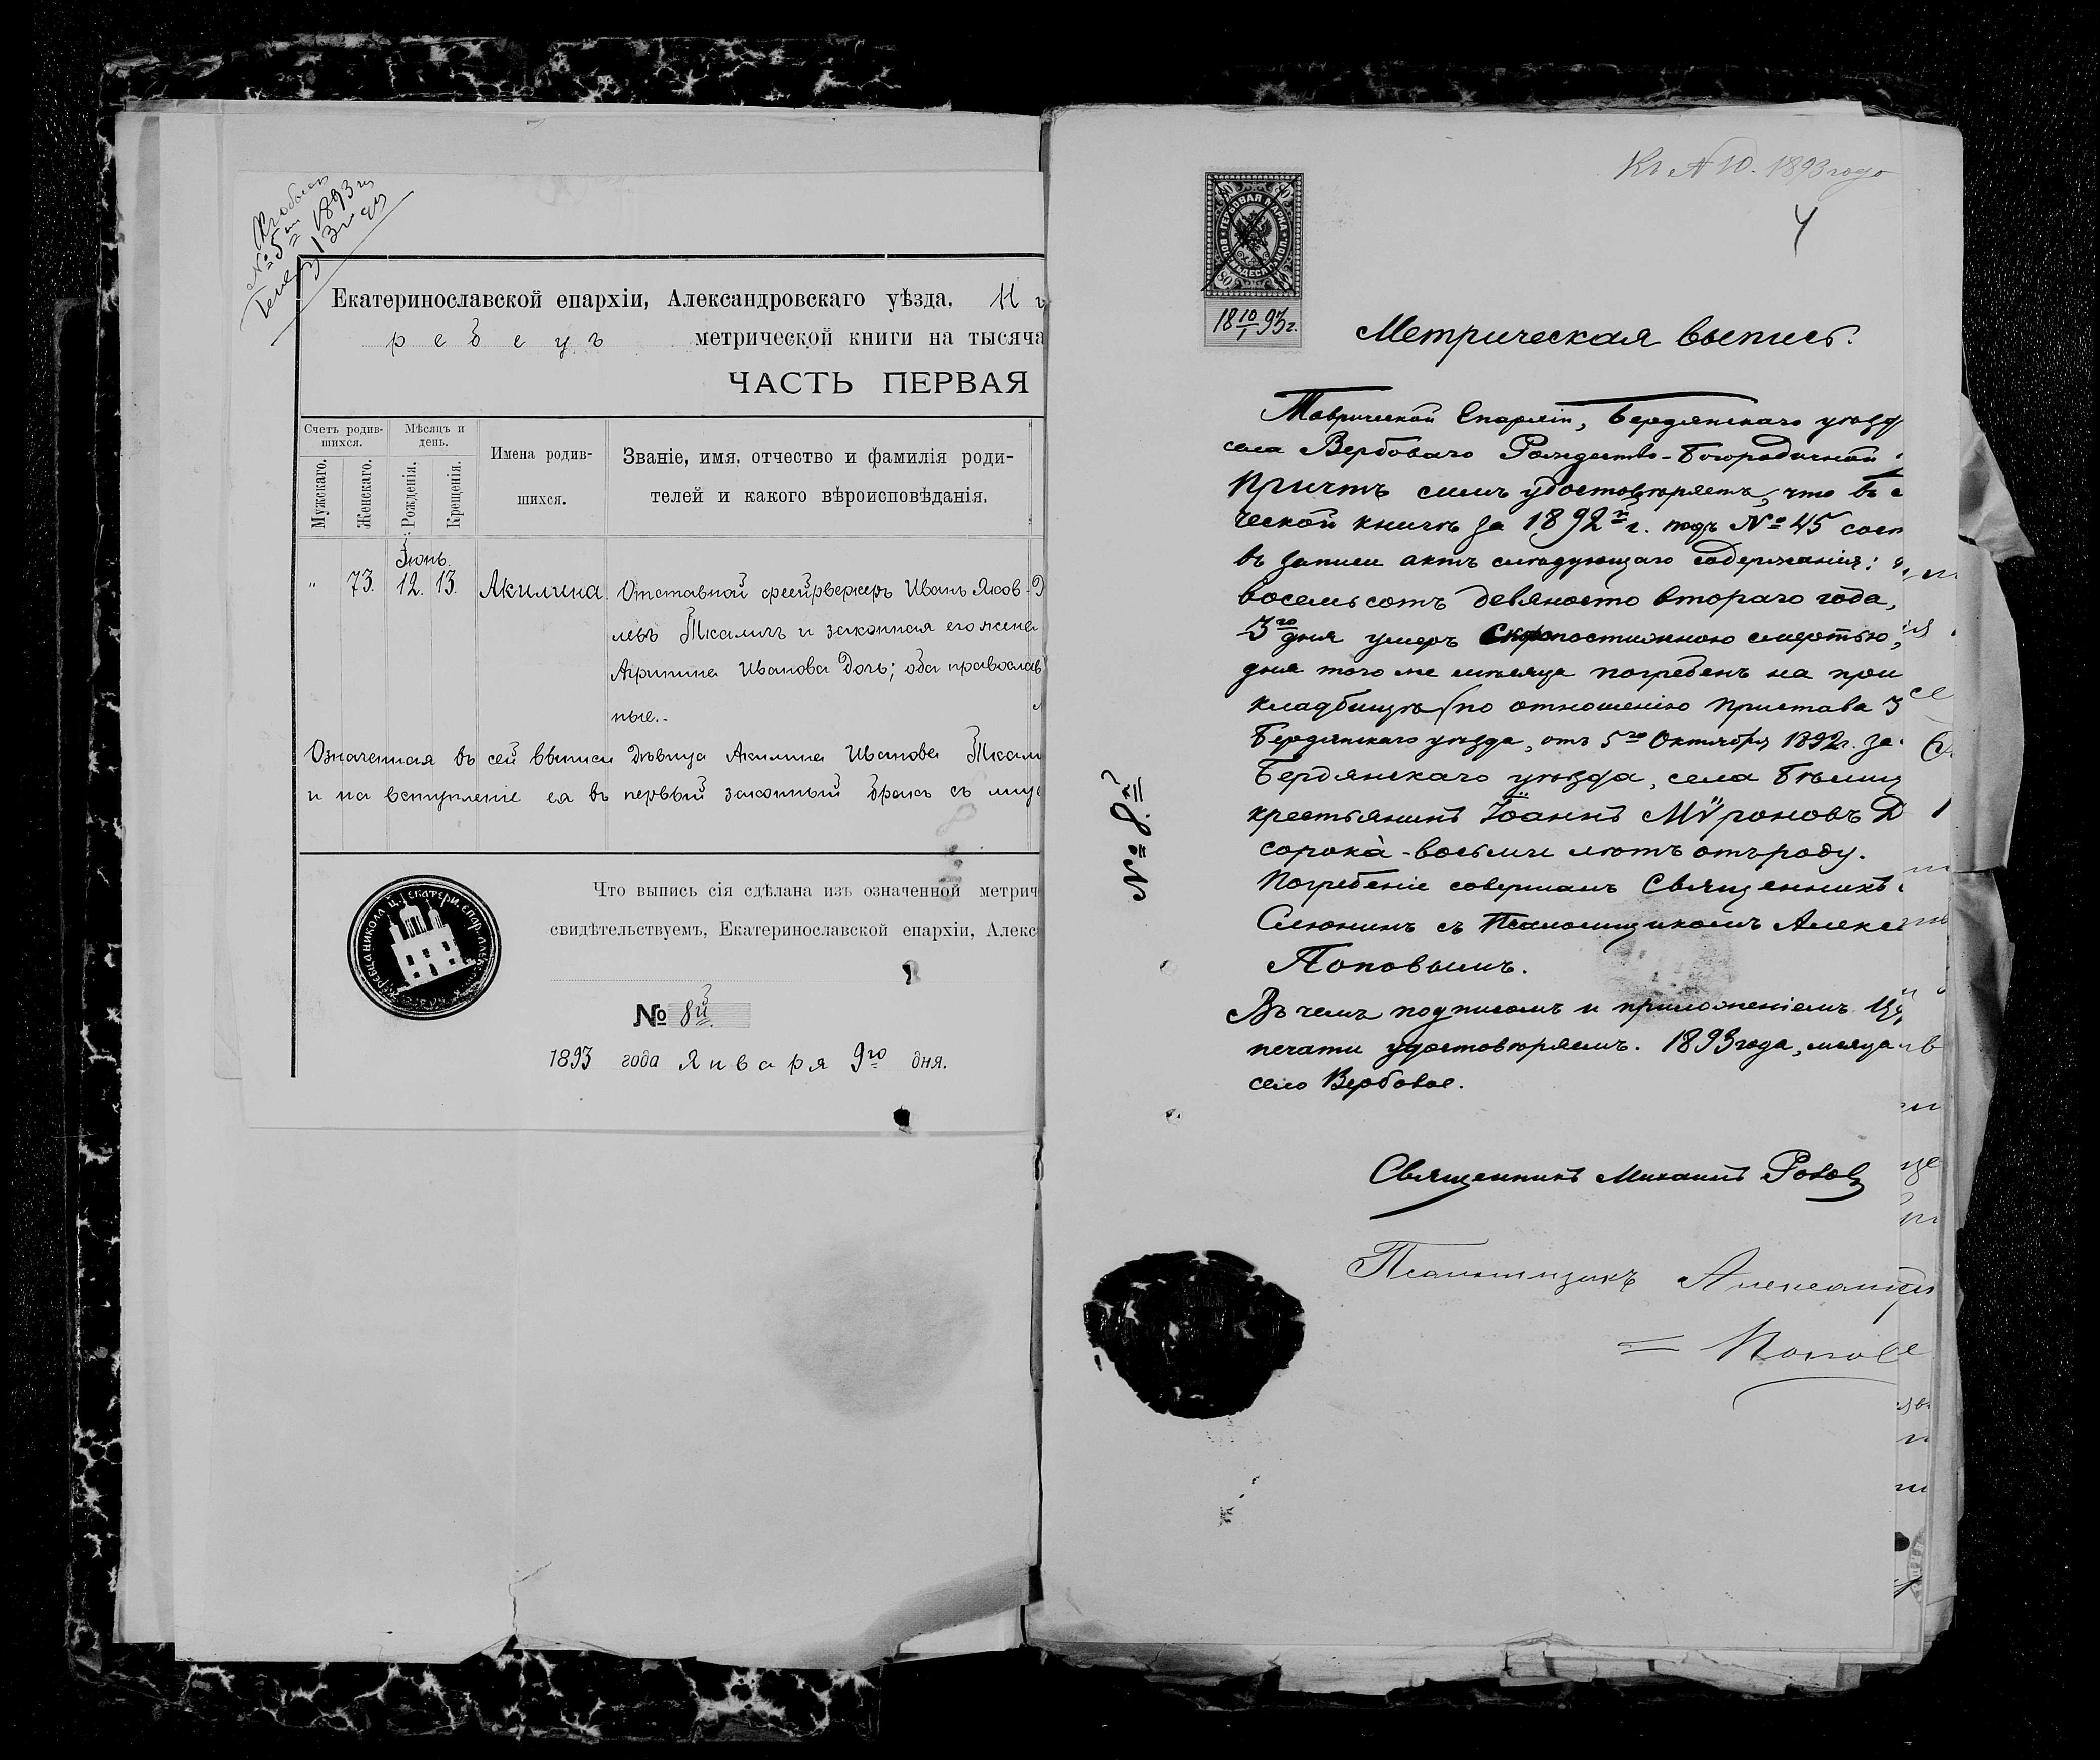 Къ обыск
№ 5й 1893 г.
Екатеринославской епархіи, Александровскаго уѣзда, М г
р е в е ц ъ метрической книги на тысяча
ЧАСТЬ ПЕРВАЯ
Счетъ родив-
шихся.
Мѣсяцъ и
день.
Мужскаго.
Женскаго.
Рожденія.
Крещенія.
Имена родив-
шихся.
Званіе, имя, отчество и фамилія роди-
телей и какого вѣроисповѣданія.
Іюнь.
" 73. 12. 13. Акилина. Отставной фейрверкеръ Иванъ Яков-
левъ Ткаличъ и законная его жена
Агрипина Иванова дочь; оба православ
ные.
Означенная въ сей выписи дѣвица Акилина Иванова Ткали
и на вступленіе ея въ первый законный бракъ съ
Что выпись сія сдѣлана изъ означенной метрич
свидѣтельствуемъ, Екатеринославской епархіи, Алекс
№ 8й.
1893 года Января 9го дня.
Къ № 10. 1893 года
4
ГЕРБОВАЯ МАРКА
ВОСЕМЬДЕСЯТЪ КОП.
80
18 10/I 93 г.
Метрическая выпись.
Таврической Епархіи, Бердянскаго уѣзд
села Вербоваго Рождество-Богородичной
Причтъ симъ удостовѣряетъ, что въ
ческой книгѣ за 1892й г. подъ № 45 сост
въ записи актъ слѣдующаго содержанія:
восемьсотъ девяносто втораго года,
3го дня умеръ скоропостижною смертью,
дня того же мѣсяца погребенъ на при
кладбищѣ (по отношенію Пристава 3
Бердянскаго уѣзда, отъ 5го Октября 1892 г. за
Бердянскаго уѣзда, села Бѣлиц
крестьянинъ Іоаннъ Мѵроновъ Д
сорока-восьми лѣтъ отъ роду.
Погребеніе совершалъ Священникъ
Селюнинъ съ Псаломщикомъ Алекса
Поповымъ.
Въ чемъ подписомъ и приложеніемъ
печати удостовѣряемъ. 1893 года, мѣсяца
село Вербовое.
№ 8й
Священникъ Михаилъ Ровов
Псаломщикъ Александръ
Попов